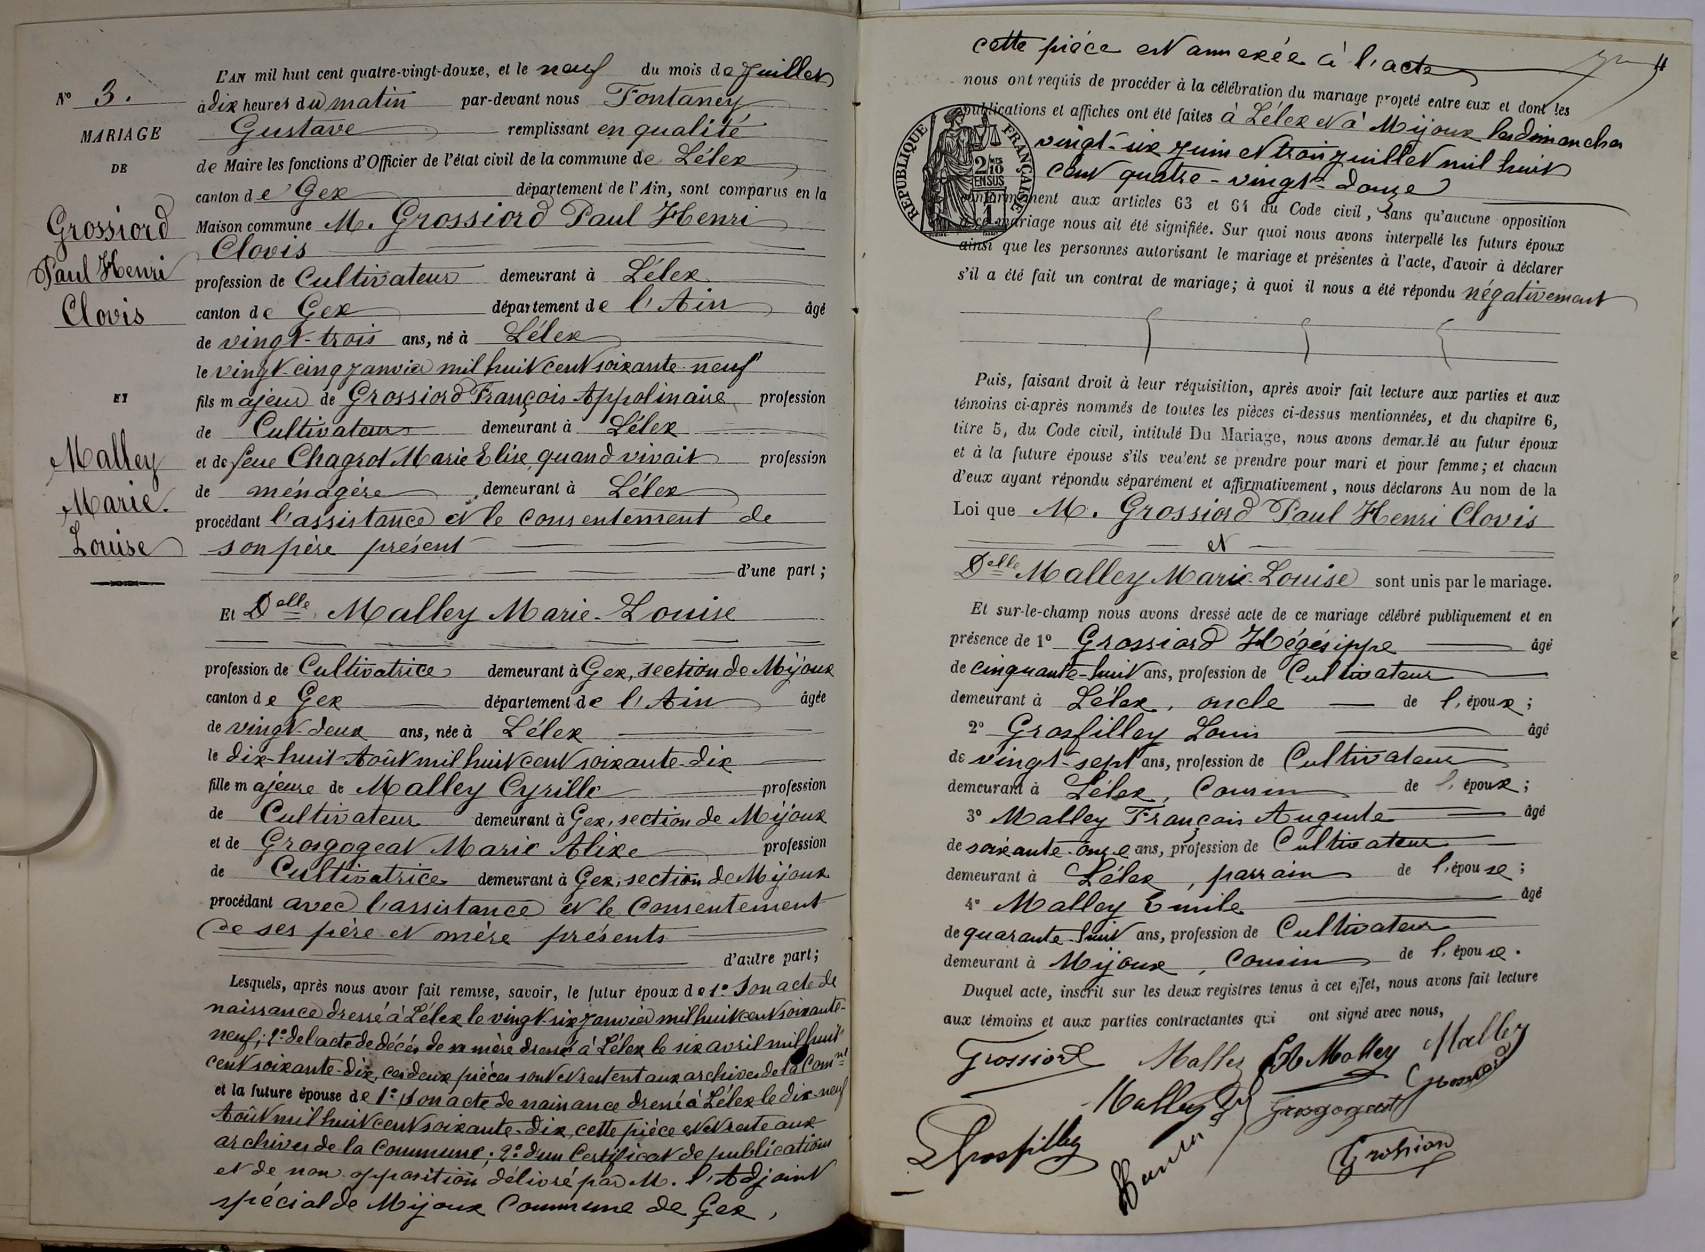 N° 3.
MARIAGE
DE
Grossiord
Paul Henri
Clovis
ET
Malley
Marie.
Louise
L'AN mil huit cent quatre-vingt-douze, et le neuf du mois de Juillet
à dix heures du matin par-devant nous Fontaney
Gustave remplissant en qualité
de Maire les fonctions d'Officier de l'état civil de la commune de Lélex
canton de Gex département de l'Ain, sont comparus en la
Maison commune M. Grossiord Paul Henri
Clovis
profession de Cultivateur demeurant à Lélex
canton de Gex département de l'Ain âgé
de vingt-trois ans, né à Lélex
le vingt-cinq janvier mil huit cent soixante-neuf
fils majeur de Grossiord François Appolinaire profession
de Cultivateur demeurant à Lélex
et de feue Chagrot Marie Elise, quand vivait profession
de ménagère demeurant à Lélex
procédant l'assistance et le consentement de
son père présent
d'une part;
Et Delle Malley Marie-Louise
profession de Cultivatrice demeurant à Gex, section de Mijoux
canton de Gex département de l'Ain âgée
de vingt-deux ans, née à Lélex
le dix-huit Août mil huit cent soixante-dix
fille majeure de Malley Cyrille profession
de Cultivateur demeurant à Gex, section de Mijoux
et de Grosgogeat Marie Alixe profession
de Cultivatrice demeurant à Gex, section de Mijoux
procédant avec l'assistance et le consentement
de ses père et mère présents
d'autre part;
Lesquels, après nous avoir fait remise, savoir, le futur époux de 1° Son acte de
naissance dressé à Lélex le vingt-six janvier mil huit cent soixante-
neuf; 2° de l'acte de décès de sa mère dressé à Lélex le six avril mil huit
cent soixante-dix, ces deux pièces sont et restent aux archives de la Comne
et la future épouse de 1° Son acte de naissance dressé à Lélex le dix-neuf
Août mil huit cent soixante-dix, cette pièce est et reste aux
archives de la commune; 2° d'un Certificat de publication
et de non opposition délivré par M. l'Adjoint
spécial de Mijoux Commune de Gex,
cette pièce est annexée à l'acte
nous ont requis de procéder à la célébration du mariage projeté entre eux et dont les
publications et affiches ont été faites à Lélex et à Mijoux les dimanches
vingt-six Juin et trois juillet mil huit
cent quatre-vingt-douze
RÉPUBLIQUE FRANÇAISE
conformément aux articles 63 et 64 du Code civil, sans qu'aucune opposition
à ce mariage nous ait été signifiée. Sur quoi nous avons interpellé les futurs époux
ainsi que les personnes autorisant le mariage et présentes à l'acte, d'avoir à déclarer
s'il a été fait un contrat de mariage; à quoi il nous a été répondu négativement
Puis, faisant droit à leur réquisition, après avoir fait lecture aux parties et aux
témoins ci-après nommés de toutes les pièces ci-dessus mentionnées, et du chapitre 6,
titre 5, du Code civil, intitulé Du Mariage, nous avons demandé au futur époux
et à la future épouse s'ils veulent se prendre pour mari et pour femme; et chacun
d'eux ayant répondu séparément et affirmativement, nous déclarons Au nom de la
Loi que M. Grossiord Paul Henri Clovis
et
Delle Malley Marie-Louise sont unis par le mariage.
Et sur-le-champ nous avons dressé acte de ce mariage célébré publiquement et en
présence de 1° Grossiord Hégésippe âgé
de cinquante-huit ans, profession de Cultivateur
demeurant à Lélex, oncle de l'époux;
2° Grosfilley Louis âgé
de vingt-sept ans, profession de Cultivateur
demeurant à Lélex, Cousin de l'époux;
3° Malley François Auguste âgé
de soixante-onze ans, profession de Cultivateur
demeurant à Lélex, parrain de l'épouse;
4° Malley Emile âgé
de quarante-huit ans, profession de Cultivateur
demeurant à Mijoux, Cousin de l'épouse.
Duquel acte, inscrit sur les deux registres tenus à cet effet, nous avons fait lecture
aux témoins et aux parties contractantes qui ont signé avec nous,
Grossiord Malley Malley Malley
Malley Grosgogeat Grossiord
Grosfilley Grossiord